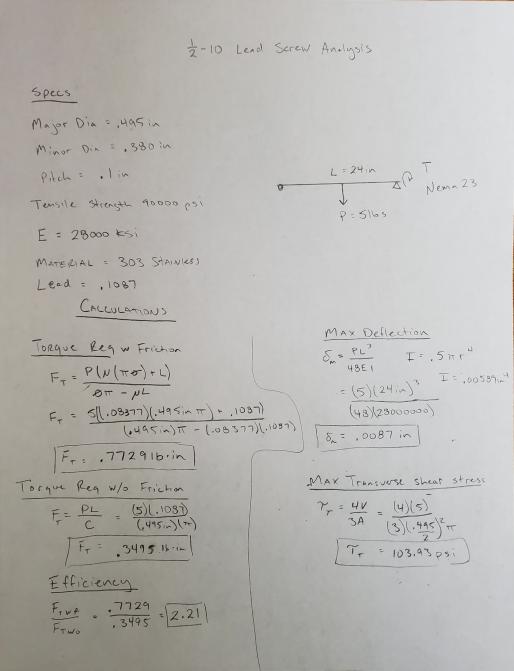 1/2-10 Lead Screw Analysis
Specs
Major Dia = .495 in
Minor Dia = .380 in
Pitch = .1 in
Tensile Strength 90000 psi
E = 28000 ksi
MATERIAL = 303 STAINLESS
Lead = .1087
L = 24 in
T
Nema 23
P = 5 lbs
CALCULATIONS
Torque Req w Friction
F_T = P(N(πD) + L) / DπN - NL
F_T = 5((.08377)(.495in π) + .1087) / (.495in)π - (.08377)(.1087)
F_T = .7729 lb·in
Torque Req w/o Friction
F_T = PL / C = (5)(.1087) / (.495in)(π)
F_T = .3495 lb·in
Efficiency
F_Twf / F_Two = .7729 / .3495 = 2.21
Max Deflection
δm = PL³ / 48EI   I = .5πr⁴
I = .00589in⁴
= (5)(24in)³ / (48)(28000000)
δm = .0087 in
Max Transverse shear stress
τr = 4V / 3A = (4)(5) / (3)(.495/2)²π
τr = 103.93 psi